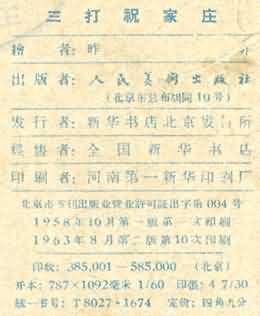 三打祝家庄
繪者：昨
出版者：人民美術出版社
（北京东总布胡同10号）
发行者：新华书店北京发行所
經售者：全国新华书店
印刷者：河南第一新华印刷厂
北京市书刊出版业营业許可証出字第004号
1958年10月第一版第一次印刷
1963年8月第二版第10次印刷
印数：385,001—585,000（北京）
开本：787×1092毫米 1/60 印張：4 7/30
統一书号：T8027·1674 定价：四角九分